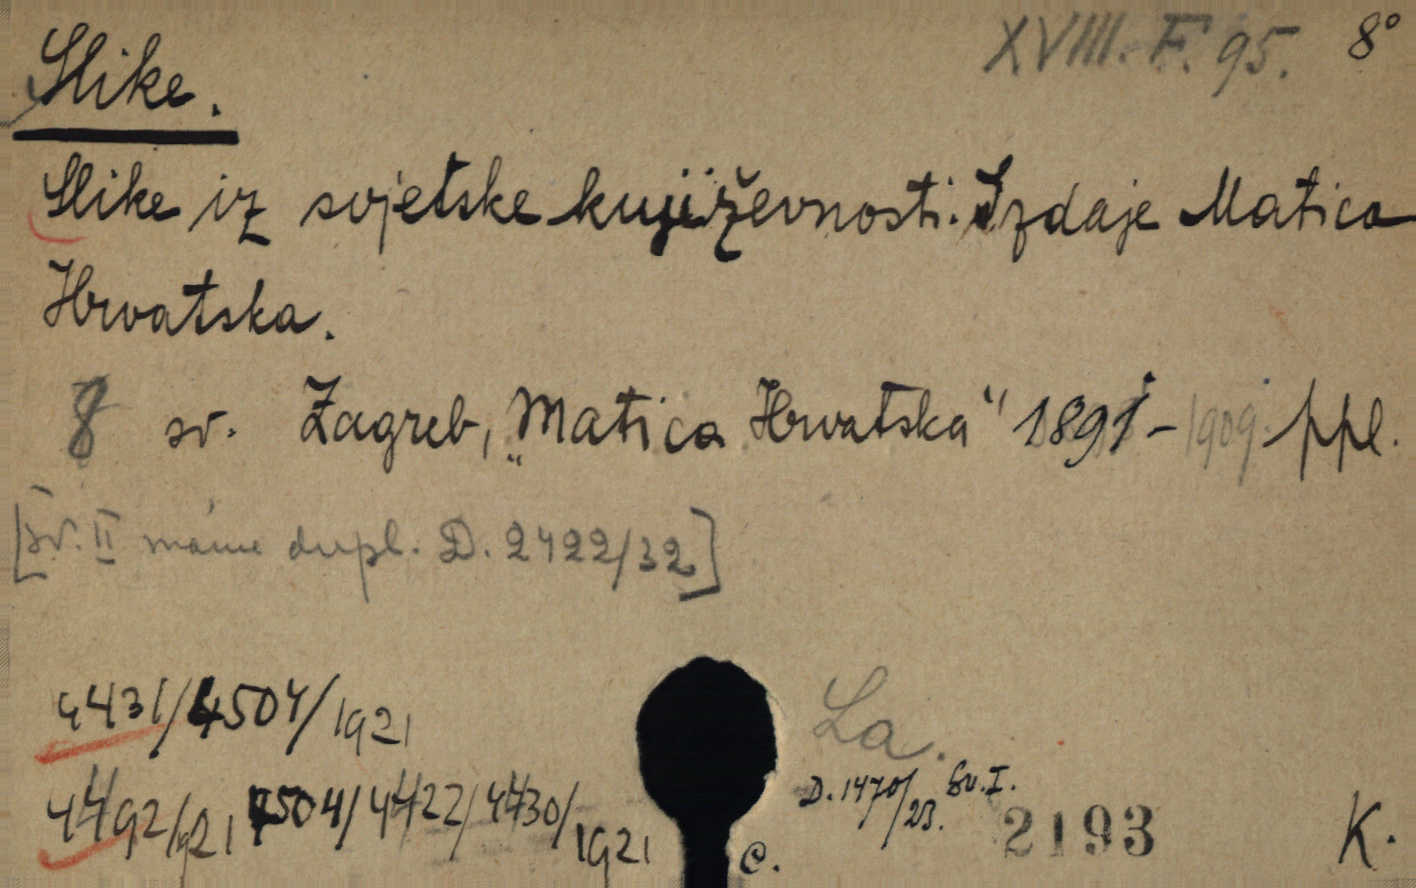 XVIII. F. 95. 8°
Slike.
Slike iz svjetske književnosti. Izdaje Matica
Hrvatska.
8 sv. Zagreb, „Matica Hrvatska" 1891-1909. ppl.
[Sv. II máme dupl. D. 2422/32]
4431/4504/1921
La.
D. 1470/23. Sv. I.
4492/921 4504/4422/4430/1921
c. 2193 K.